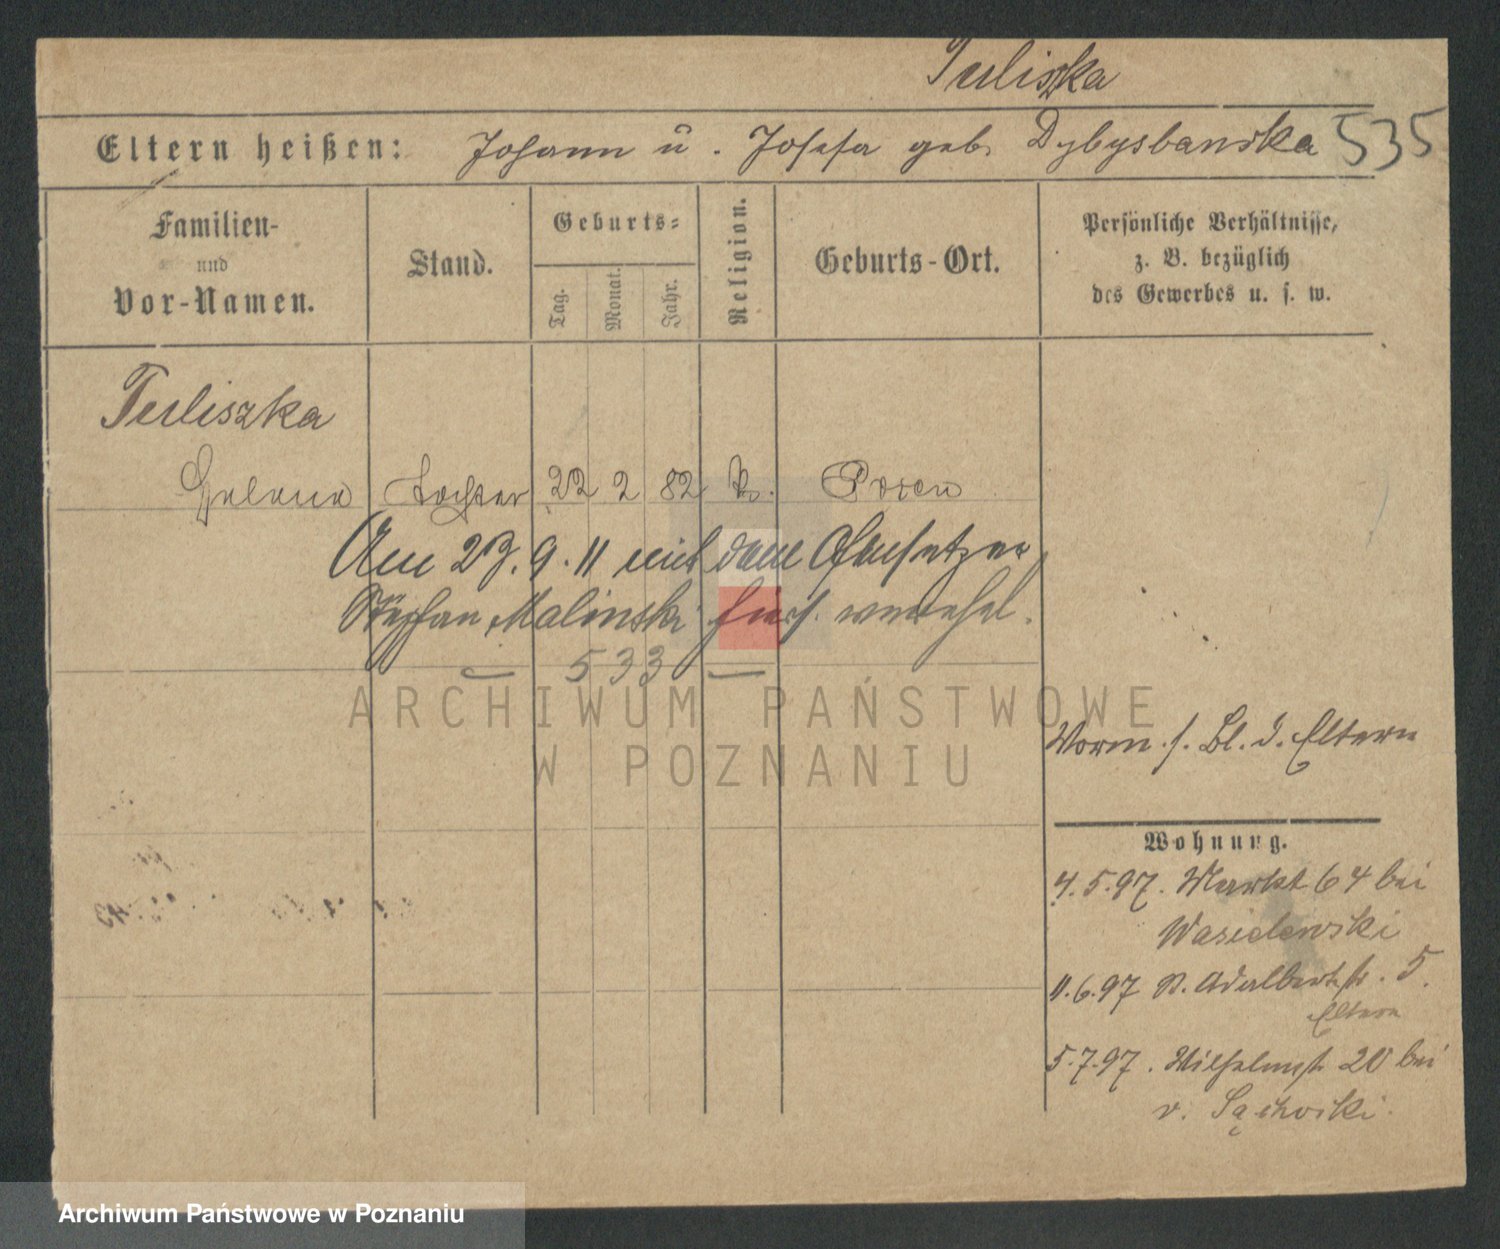 Tuliszka
Eltern heißen: Johann u. Josefa geb. Dybysbanska 535
Familien- und Vor-Namen.
Stand.
Geburts-
Tag. Monat. Jahr.
Religion.
Geburts-Ort.
Persönliche Verhältnisse,
z. B. bezüglich
des Gewerbes u. s. w.
Tuliszka
Helene Tochter 22 2 82 k. Posen
Am 23. 9. 11 mit dem Ofensetzer
Stephan Malinski hier verehel.
533
ARCHIWUM PAŃSTWOWE
W POZNANIU
Vorm. s. Bl. d. Eltern
Wohnung.
4. 5. 97. Markt 64 bei
Wasielewski
11. 6. 97 St. Adalbertstr. 5.
Eltern
5. 7. 97. Wilhelmst 20 bei
v.
Archiwum Państwowe w Poznaniu